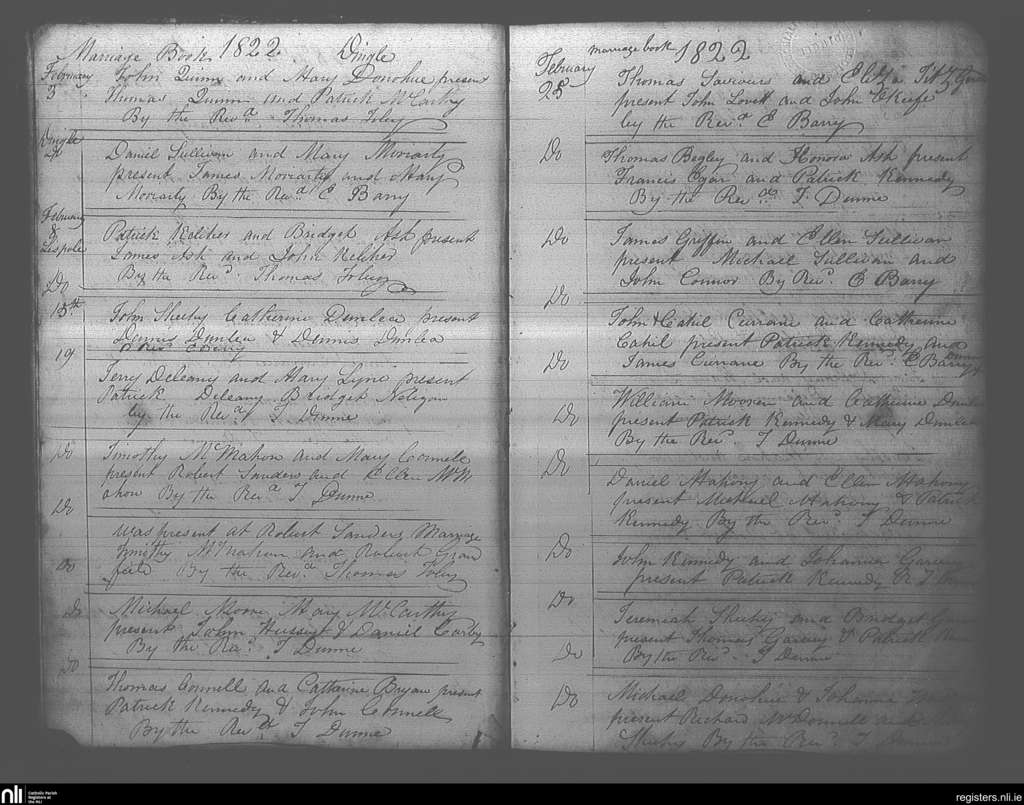 Marriage Book 1822 Dingle
February 3 John Quinn and Mary Donohue present
Thomas Quinn and Patrick McCarthy
By the Revd. Thomas Foley
Dingle
Do Daniel Sullivan and Mary Moriarty
present James Moriarty and Mary
Moriarty By the Revd. E Barry
February
8 Patrick Kelcher and Bridget Ash present
Lispole James Ash and John Kelcher
By the Revd. Thomas Foley
Do
15th John Sheehy Catherine Dunlea present
Dennis Dunlea & Dennis Dunlea
19
Terry Deleany and Mary Lyne present
Patrick Deleany Bridget
by the Revd. T Dunne
Do Timothy McMahon and Mary Connell
present Robert Sanders and Ellen McM
ahon By the Revd T Dunne
Do
was present at Robert Sanders Marriage
Timothy McMahon and Robert Gran
field By the Revd. Thomas Foley
Do
Do Michael Moore Mary McCarthy
present John Hussey & Daniel
By the Rev. T Dunne
Do
Thomas Connell and Catherine Bryan present
Patrick Kennedy & John Connell
By the Revd T Dunne
marriage book 1822
February 25 Thomas and Eliza Fitz
present John Lovett and John OKeefe
by the Revd. E Barry
Do Thomas Begley and Honora Ash present
Francis Egan and Patrick Kennedy
By the Revd. T. Dunne
Do James Griffin and Ellen Sullivan
present Michael Sullivan and
John Connor By Revd. E Barry
Do
John Cahil Currane and Catherine
Cahil present Patrick Kennedy and
Do James Currane By the Revd. E Barry
William and Catherine
Do present Patrick Kennedy & Mary
By the Revd. T Dunne
Do
Daniel Mahony and Ellen Mahony
present Michael Mahony & Patrick
Kennedy By the Revd. T Dunne
Do
John Kennedy and Johanna
present Patrick Kennedy & T
Do
Jeremiah Sheehy and Bridget
present Thomas & Patrick
Do By the Revd. T Dunne
Do Michael Donohue & Johanna
present Richard McDonnell and
Sheehy By the Rev. T Dunne
nli Catholic Parish
Registers at
the NLI
registers.nli.ie